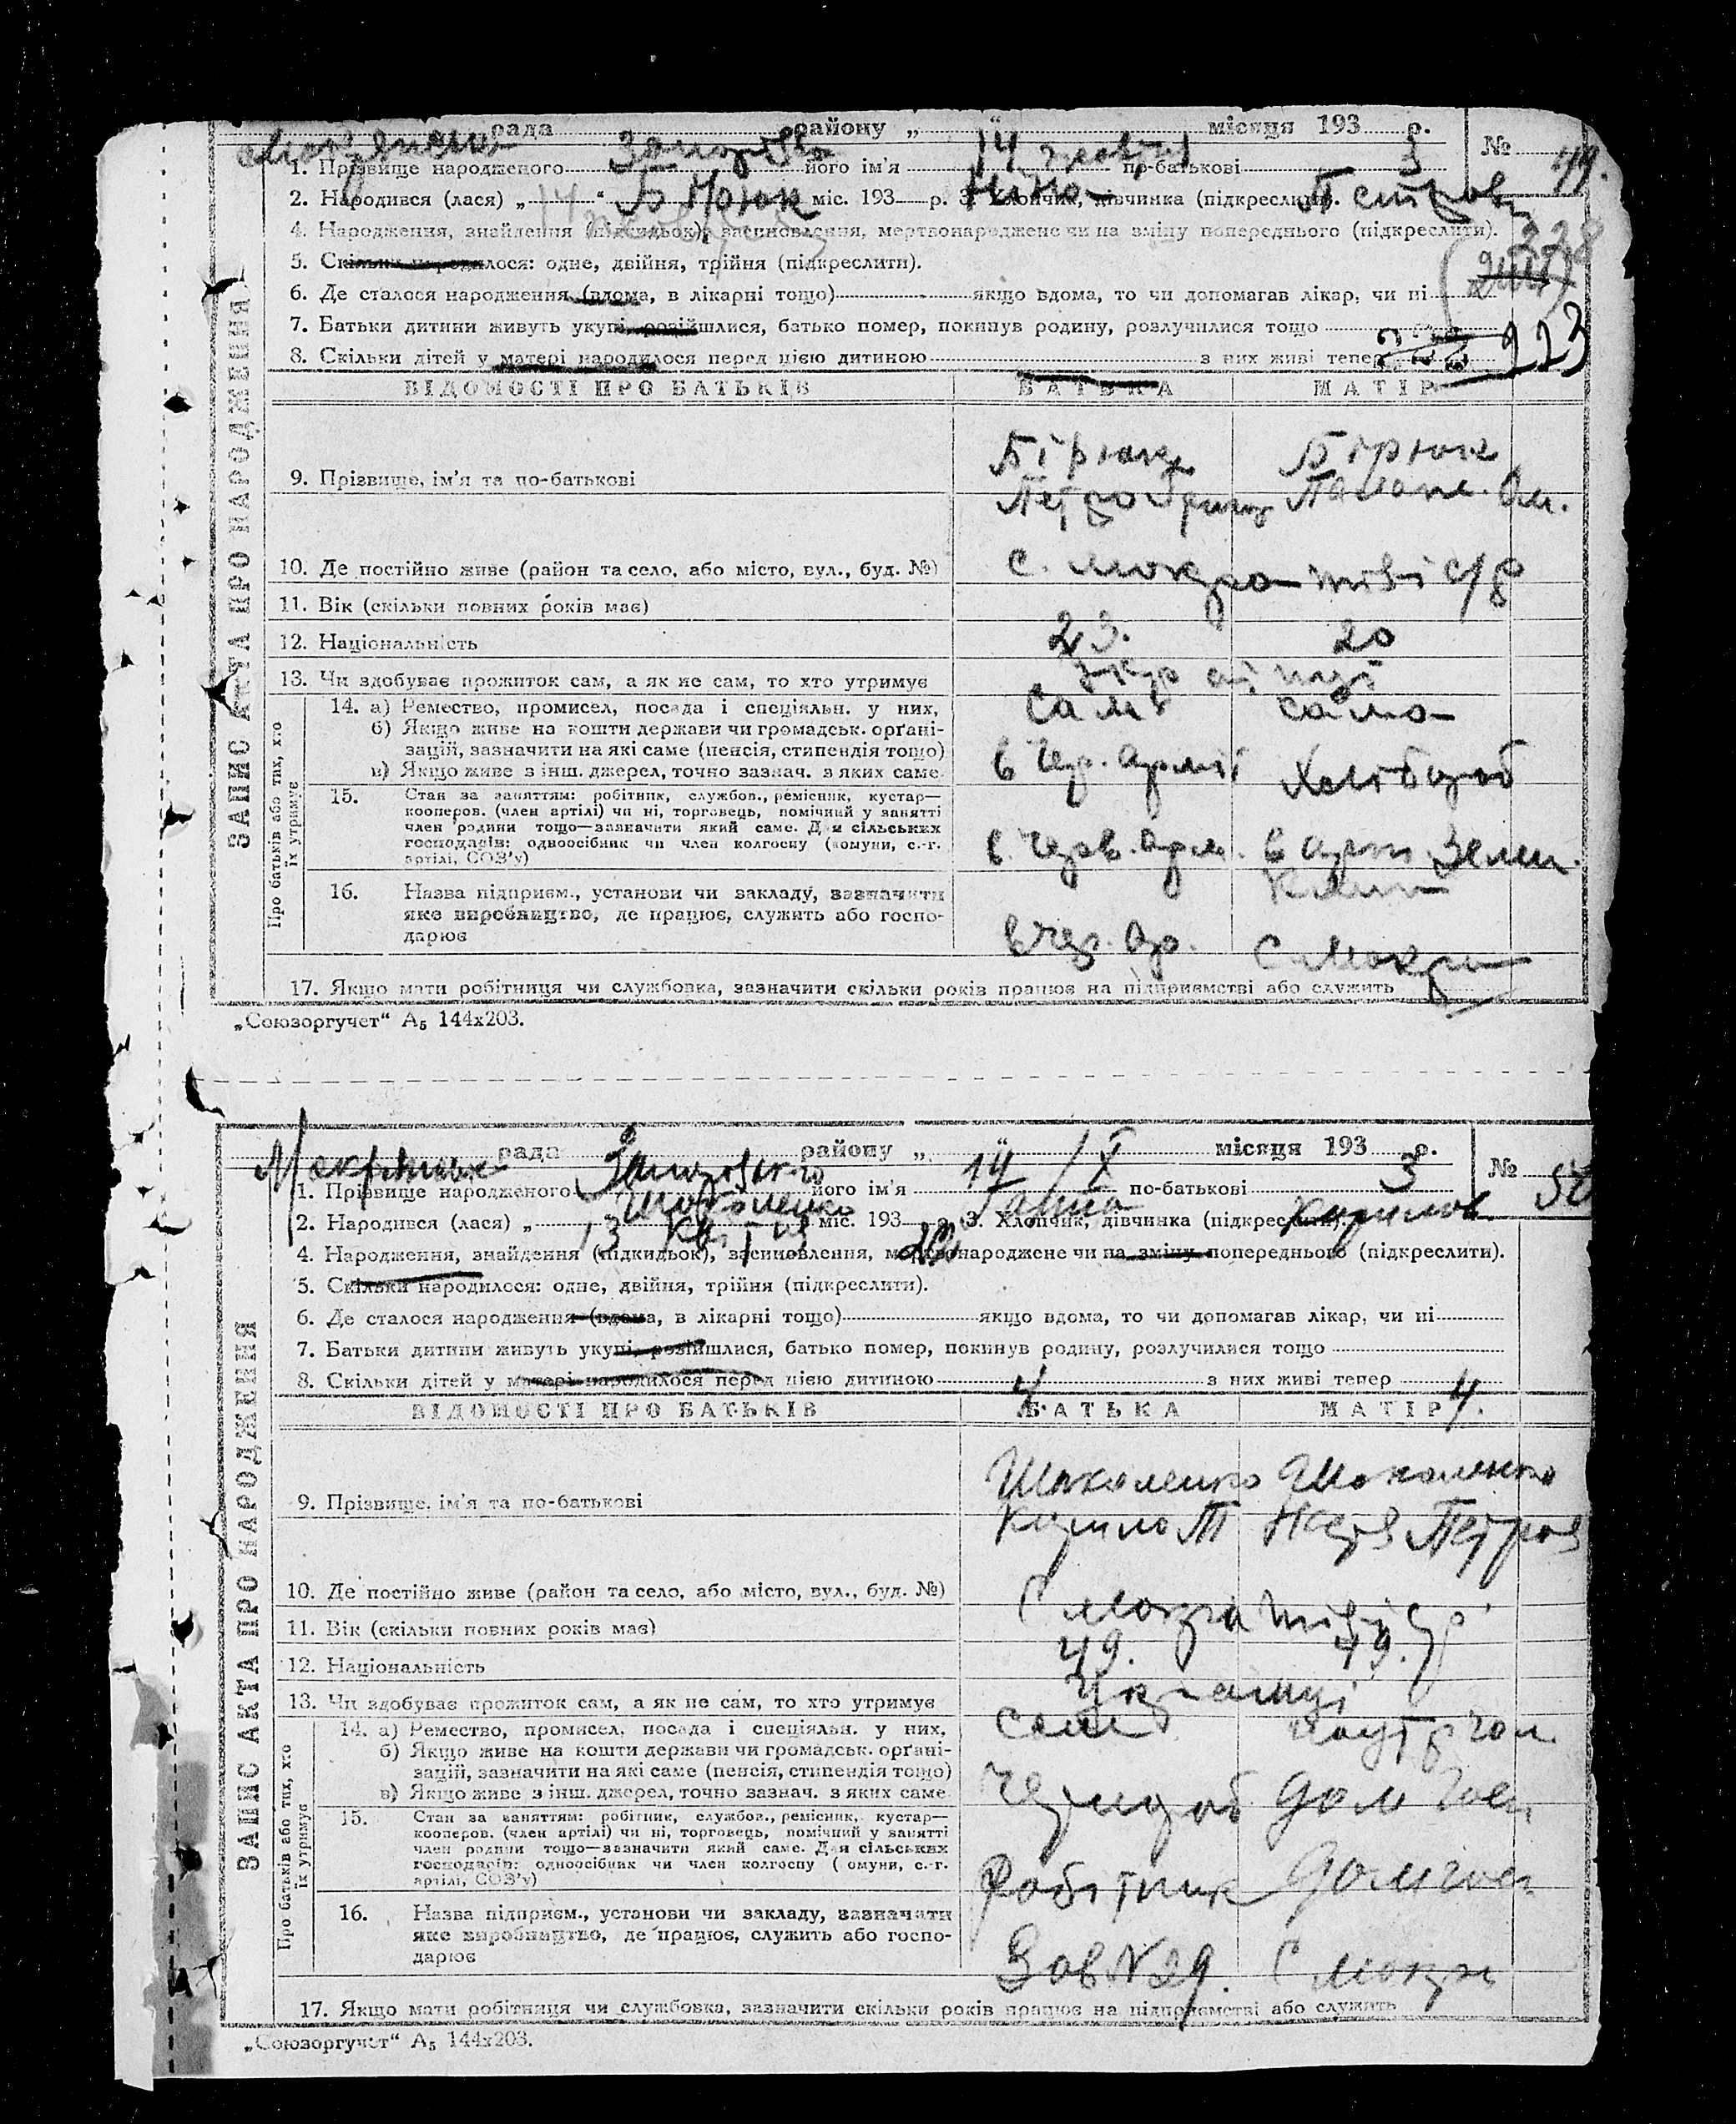 рада району „ “ місяця 193 р. №
Запорізько 14 жовтня 3 49.
1. Прізвище народженого його ім'я по-батькові
2. Народився (лася) „ “ міс. 193 р. 3. Хлопчик, дівчинка (підкреслити).
Петров
4. Народження, знайдення (підкидьок), засиновлення, мертвонароджене чи на зміну попереднього (підкреслити).
5. Скільки народилося: одне, двійня, трійня (підкреслити).
6. Де сталося народження (вдома, в лікарні тощо) якщо вдома, то чи допомагав лікар, чи ні
7. Батьки дитини живуть укупі, розійшлися, батько помер, покинув родину, розлучилися тощо
223
8. Скільки дітей у матері народилося перед цією дитиною з них живі тепер
ВІДОМОСТІ ПРО БАТЬКІВ БАТЬКА МАТІР
ЗАПИС АКТА ПРО НАРОДЖЕННЯ
Бірюк Бірюк
9. Прізвище, ім'я та по-батькові
Петро
10. Де постійно живе (район та село, або місто, вул., буд. №) с. Мокра
11. Вік (скільки повних років має)
23. 20
12. Національність
13. Чи здобуває прожиток сам, а як не сам, то хто утримує
Сам сама
Про батьків або тих, хто їх утримує
14. а) Ремество, промисел, посада і спеціяльн. у них,
б) Якщо живе на кошти держави чи громадськ. органі-
зацій, зазначити на які саме (пенсія, стипендія тощо)
в) Якщо живе з інш. джерел, точно зазнач. з яких саме
в Чер. армії Хлібороб
15. Стан за заняттям: робітник, службов., ремісник, кустар—
кооперов. (член артілі) чи ні, торговець, помічний у занятті
член родини тощо—зазначити який саме. Для сільських
господарів: одноосібник чи член колгоспу (комуни, с.-г.
артілі, СОЗ'у)
в. Черв. арм.
16. Назва підприєм., установи чи закладу, зазначити
яке виробництво, де працює, служить або госпо-
дарює
в Чер. Ар. С Мокра
17. Якщо мати робітниця чи службовка, зазначити скільки років працює на підприємстві або служить
„Союзоргучет“ А₅ 144х203.
рада району „ “ місяця 193 р. №
14 / X 3 50
1. Прізвище народженого його ім'я по-батькові
Шаколенко Ганна Кирилов
2. Народився (лася) „ “ міс. 193 р. 3. Хлопчик, дівчинка (підкреслити).
13
4. Народження, знайдення (підкидьок), засиновлення, мертвонароджене чи на зміну попереднього (підкреслити).
5. Скільки народилося: одне, двійня, трійня (підкреслити).
6. Де сталося народження (вдома, в лікарні тощо) якщо вдома, то чи допомагав лікар, чи ні
7. Батьки дитини живуть укупі, розійшлися, батько помер, покинув родину, розлучилися тощо
8. Скільки дітей у матері народилося перед цією дитиною з них живі тепер
4. 4.
ВІДОМОСТІ ПРО БАТЬКІВ БАТЬКА МАТІР
ЗАПИС АКТА ПРО НАРОДЖЕННЯ
Шаколенко Шаколенко
9. Прізвище, ім'я та по-батькові
Кирило Т Петров
10. Де постійно живе (район та село, або місто, вул., буд. №)
С Мокра
11. Вік (скільки повних років має)
49. 49.
12. Національність
Українці
13. Чи здобуває прожиток сам, а як не сам, то хто утримує
Сам
Про батьків або тих, хто їх утримує
14. а) Ремество, промисел, посада і спеціяльн. у них,
б) Якщо живе на кошти держави чи громадськ. органі-
зацій, зазначити на які саме (пенсія, стипендія тощо)
в) Якщо живе з інш. джерел, точно зазнач. з яких саме
Чернороб Дом
15. Стан за заняттям: робітник, службов., ремісник, кустар—
кооперов. (член артілі) чи ні, торговець, помічний у занятті
член родини тощо—зазначити який саме. Для сільських
господарів: одноосібник чи член колгоспу (комуни, с.-г.
артілі, СОЗ'у)
Робітник
16. Назва підприєм., установи чи закладу, зазначити
яке виробництво, де працює, служить або госпо-
дарює
Зав N 29. С Мокра
17. Якщо мати робітниця чи службовка, зазначити скільки років працює на підприємстві або служить
„Союзоргучет“ А₅ 144х203.